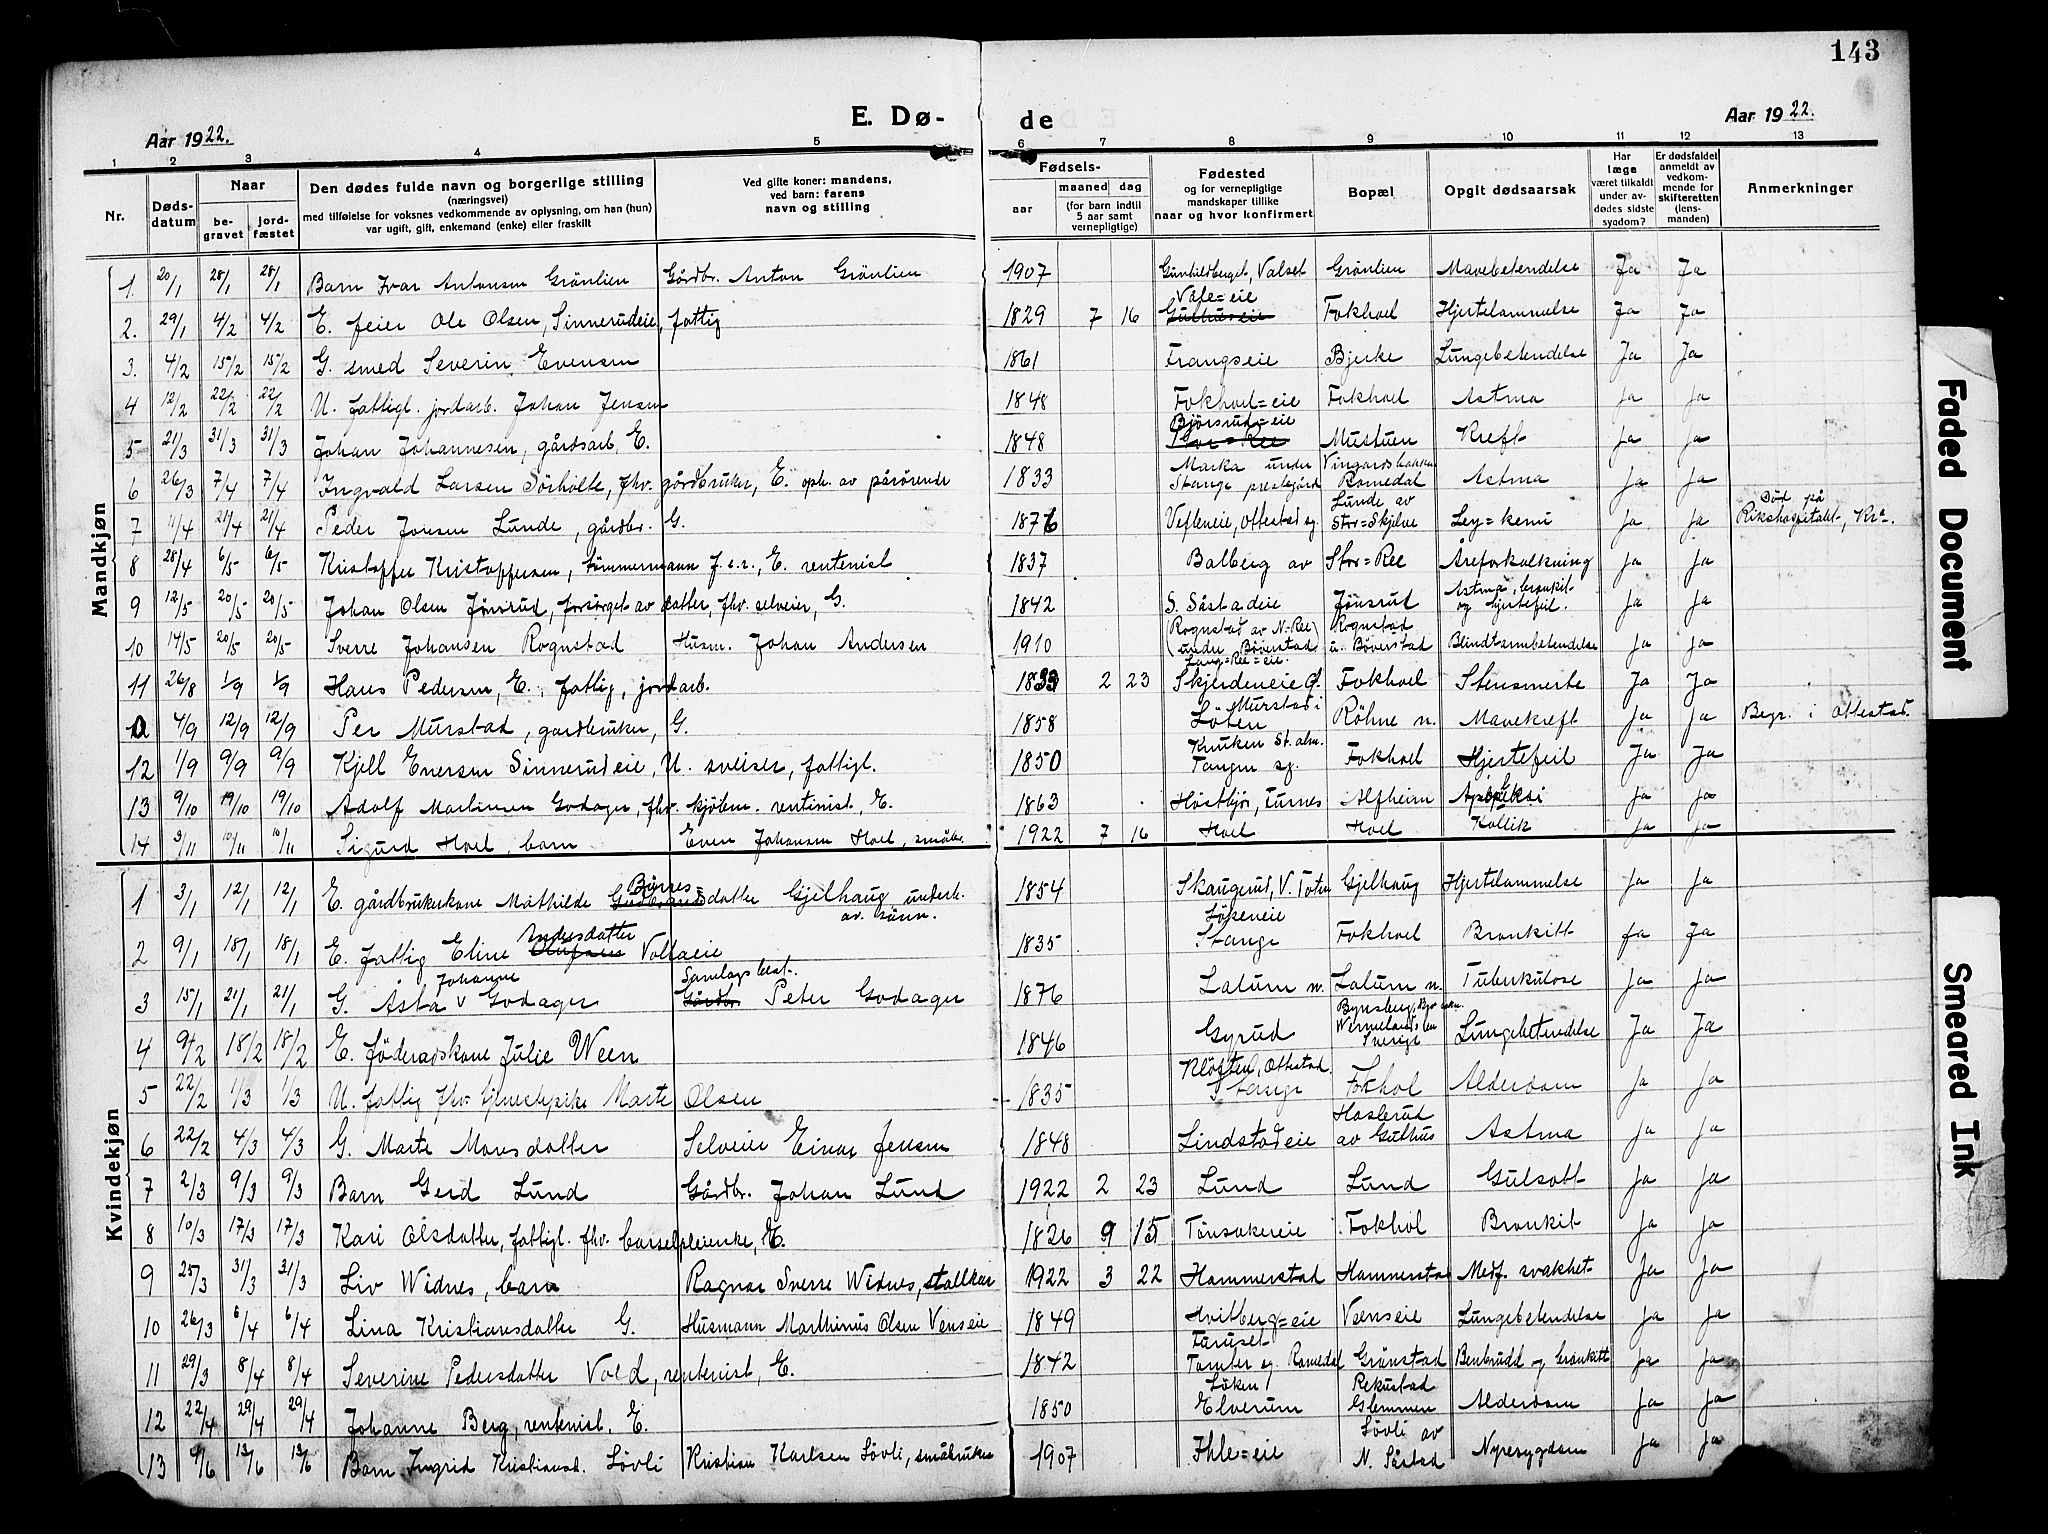 143
E. Dø-de
Aar 1922.
Aar 1922.
1 2 3 4 5 6 7 8 9 10 11 12 13
Nr.
Døds-datum
Naar
be-gravet
jord-fæstet
Den dødes fulde navn og borgerlige stilling
(næringsvei)
med tilføielse for voksnes vedkommende av oplysning, om han (hun)
var ugift, gift, enkemand (enke) eller fraskilt
Ved gifte koner: mandens,
ved barn: farens
navn og stilling
Fødsels-
aar
maaned dag
(for barn indtil
5 aar samt
vernepligtige)
Fødested
og for vernepligtige
mandskaper tillike
naar og hvor konfirmert
Bopæl
Opgit dødsaarsak
Har
læge
været tilkaldt
under av-
dødes sidste
sygdom?
Er dødsfaldet
anmeldt av
vedkom-
mende for
skifteretten
(lens-
manden)
Anmerkninger
Mandkjøn
1. 20/1 28/1 28/1 Barn Ivar Antonsen Grönlien Gårdbr. Anton Grönlien 1907 Gunhildberget, Valset Grönlien Mavebetendelse Ja Ja
2. 29/1 4/2 4/2 E. feier Ole Olsen, Sinnerudeie, fattig 1829 7 16 Vale=eie Fokhoel Hjertelammelse Ja Ja
3. 4/2 15/2 15/2 G. smed Severin Evensen 1861 Frangseie Bjerke Lungebetendelse Ja Ja
4 12/2 22/2 22/2 U. fattigl. jordarb. Johan Jensen 1848 Fokhoel=eie Fokhoel Astma Ja Ja
5 21/3 31/3 31/3 Johan Johannesen, gårdsarb, E. 1848 Björsrud=eie Stor=Ree Mustuen Kreft Ja Ja
6 26/3 7/4 7/4 Ingvald Larsen Sörholte, fhv. gårdbruker, E. oph. av pårörende 1833 Marka under Stange prestegård Vingardsbakken Romedal Astma Ja Ja
7 11/4 21/4 21/4 Peder Jonsen Lunde, gårdbr. G. 1876 Vefleneie, Ottestad sg. Lunde av Stor=Skjelve Ley=kemi Ja Ja Död på Rikshospitalet, Kra.
8 28/4 6/5 6/5 Kristoffer Kristoffersen, tömmermann f.e.r., E. rentenist 1837 Balberg av Stor=Ree Åreforkalkning Ja Ja
9 12/5 20/5 20/5 Johan Olsen Jönsrud, forsörget av datter, fhv. selveier, G. 1842 S. Såstadeie Jönsrud Astma, bronkit- og hjertefeil. Ja Ja
10 14/5 20/5 20/5 Sverre Johansen Rognstad Husm. Johan Andersen 1910 (Rognstad av N-Ree) under Böverstad Rognstad u. Böverstad Blindtarmbetendelse Ja Ja
11 26/8 1/9 1/9 Hans Pedersen, E., fattig, jordarb. 1833 2 23 Lang=Ree=eie. Skjerdeneie Fokhoel Stensmerte Ja Ja
4/9 12/9 12/9 Per Murstad, gardbruker, G. 1858 Murstad i Löten Röhne n. Mavekreft Ja Ja Begr. i Ottestad.
12 1/9 9/9 9/9 Kjell Enersen Sinnerudeie, U. sveiser, fattigl. 1850 Knuken St. alm. Tangen sg. Fokhoel Hjertefeil Ja Ja
13 9/10 19/10 19/10 Adolf Martinsen Godager, fhv. kjöbm. rentinist, E. 1863 Höstbjör, Furnes Alfheim Apopleksi Ja Ja
14 3/11 10/11 10/11 Sigurd Hoel, barn Even Johansen Hoel, småbr. 1922 7 16 Hoel Hoel Kollik Ja Ja
Kvindekjøn
1 3/1 12/1 12/1 E. gårdbrukerkone Mathilde Börres=datter Gjelhaug underh. av sönn. 1854 Skaugerud, V. Toten Gjelhaug Hjertelammelse Ja Ja
2 9/1 18/1 18/1 E. fattig Eline Andersdatter Vollaeie 1835 Lökeneie Stange Fokhoel Bronkitt Ja Ja
3 15/1 21/1 21/1 G. Åsta Johanne Godager Samlagsbest. Gårdbr. Peter Godager 1876 Latum n. Latum n. Tuberkulose Ja Ja
4 9/2 18/2 18/2 E. föderådskone Julie Ween 1846 Gyrud Wermelands len Sverige Lungebetendelse Ja Ja
5 22/2 1/3 1/3 U. fattig fhv. tjenestepike Marte Olsen 1835 Klösten, Ottestad. Stange Fokhol Alderdom Ja Ja
6 22/2 4/3 4/3 G. Marte Monsdatter Selveier Einar Jensen 1848 Lindstadeie Haslerud av Guthus Astma Ja Ja
7 2/3 9/3 9/3 Barn Gerd Lund Gårdbr. Johan Lund 1922 2 23 Lund Lund Gulsott Ja Ja
8 10/3 17/3 17/3 Kari Olsdatter, fattigl. fhv. barselpleierske, E. 1826 9 15 Tönsakereie Fokhol Bronkit Ja Ja
9 25/3 31/3 31/3 Liv Widnes, barn Ragnar Sverre Widnes, stallkar 1922 3 22 Hammerstad Hammerstad Medf. svakhet Ja Ja
10 26/3 6/4 6/4 Lina Kristiansdatter G. Husmann Marthinus Olsen Venseie 1849 Hvitberg=eie Vænseie Lungebetendelse Ja Ja
11 29/3 8/4 8/4 Severine Pedersdatter Vold, rentenist, E. 1842 Tomter sg. Romedal Grönstad Benbrudd og bronkitt Ja Ja
12 22/4 29/4 29/4 Johanne Berg, rentenist. E. 1850 Löken, Elverum Rekustad Glemmen Alderdom Ja Ja
13 6/6 13/6 13/6 Barn Ingrid Kristiansd. Lövli Kristian Karlsen Lövli, småbruker 1907 Ihle=eie Lövli av N. Såstad Nyresygdom Ja Ja
Faded Document
Smeared Ink